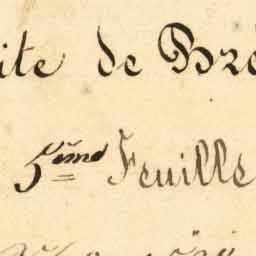 ite de Bré
5ème Feuille